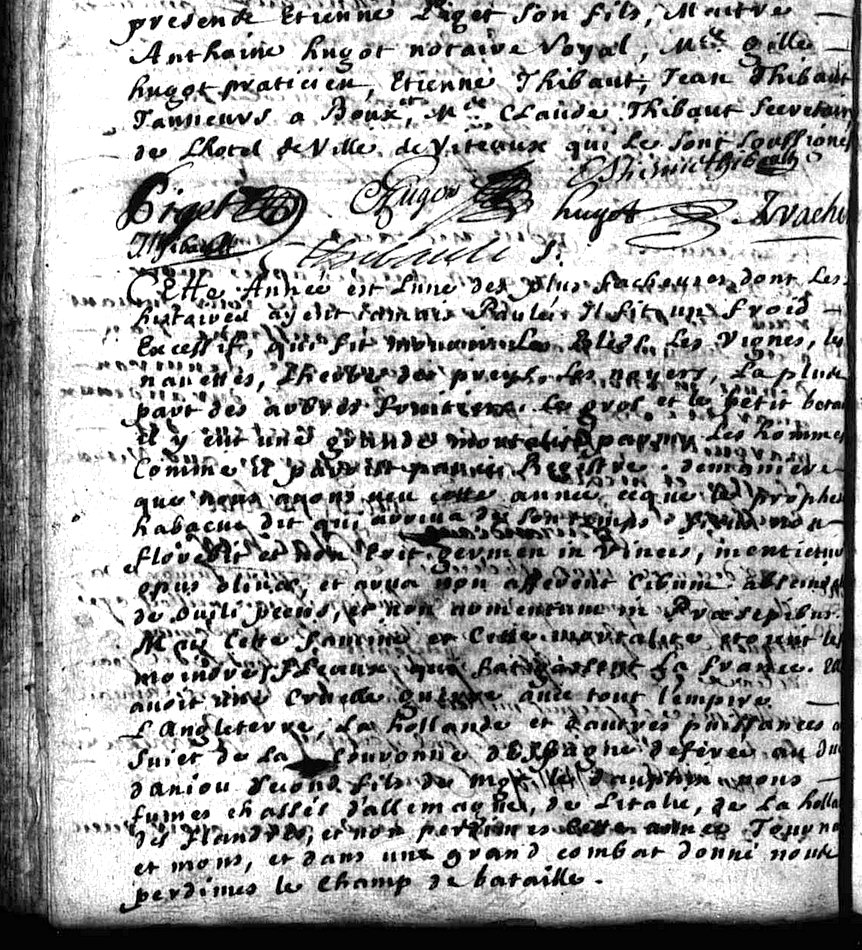 presence Etienne Piget son fils, Maitre
Anthoine hugot notaire Royal, Mre gille
hugot praticien, Etienne Thibaut, Jean Thibaut
Tanneurs a Boux, et Mre Claude Thibaut secretaire
de Lhotel de Ville de Viteaux qui se sont soussignes
Estienne thibault
Piget hugot hugot
Thibault Thibault
Cette Année est lune des plus facheuses dont Les
histoires ayent jamais Paulés Il fit un froid
Excessif, qui fit mourir Les Bleds, Les Vignes, les
navettes, Lherbe des preys, Les noyers, La plus
part des arbres fruitiers. Le gros et le petit betail
il y eut une grande mortalité parmy Les hommes
Comme il paroist par ce Registre. de maniere
que nous avons veu cette année ce que le prophete
habacuc dit qui arriva de son temps. ficus non
florebit et non erit germen in Vineis, mentietur
opus olivae, et arva non afferent Cibum abscindetur
de ovili pecus, et non armentum in Praesepibus.
Mais Cette famine et Cette mortalite etoient les
moindres fleaux qui La france. Elle
avoit une Cruelle guerre avec tout lempire
L'Angleterre, La hollande et d'autres puissances au
Sujet de La Couronne dEspagne deferée au duc
daniou second fils de mgr le dauphin nous
fumes chassés dallemagne, de Litalie, de La hollande
des flandres, et nous perdimes cette année Tournay
et mons, et dans une grand combat donné nous
perdimes le Champ de bataille.